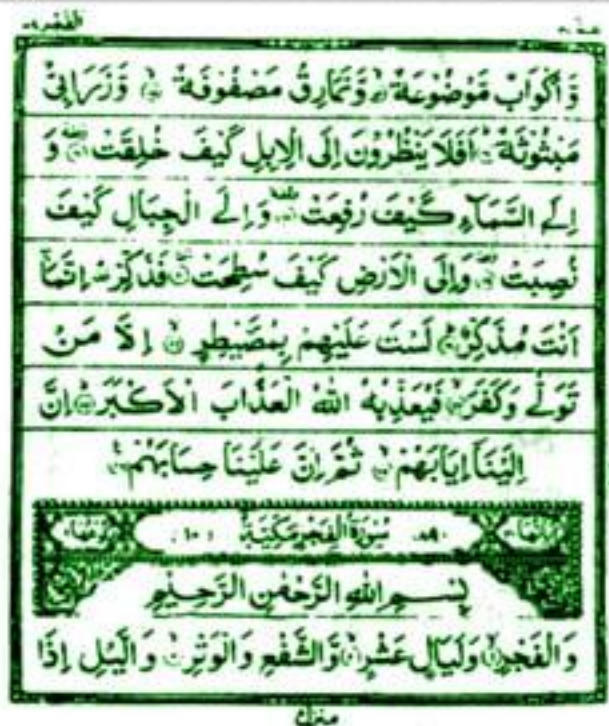 الفجر ٨٩
عم ٣٠
وَّاَكْوَابٌ مَّوْضُوْعَةٌ ۙ وَّنَمَارِقُ مَصْفُوْفَةٌ ۙ وَّزَرَابِیُّ
مَبْثُوْثَةٌ ؕ اَفَلَا یَنْظُرُوْنَ اِلَی الْاِبِلِ كَیْفَ خُلِقَتْ ۥ وَ
اِلَی السَّمَآءِ كَیْفَ رُفِعَتْ ۥ وَاِلَی الْجِبَالِ كَیْفَ
نُصِبَتْ ۥ وَاِلَی الْاَرْضِ كَیْفَ سُطِحَتْ ۥ فَذَكِّرْ ؕ اِنَّمَاۤ
اَنْتَ مُذَكِّرٌ ؕ لَسْتَ عَلَیْهِمْ بِمُصَۜیْطِرٍ ۙ اِلَّا مَنْ
تَوَلّٰی وَكَفَرَ ۙ فَیُعَذِّبُهُ اللّٰهُ الْعَذَابَ الْاَكْبَرَ ؕ اِنَّ
اِلَیْنَاۤ اِیَابَهُمْ ۙ ثُمَّ اِنَّ عَلَیْنَا حِسَابَهُمْ
سُوْرَةُ الْفَجْرِ مَكِّیَّةٌ
بِسْمِ اللّٰهِ الرَّحْمٰنِ الرَّحِیْمِ
وَالْفَجْرِ ۙ وَلَیَالٍ عَشْرٍ ۙ وَّالشَّفْعِ وَالْوَتْرِ ۙ وَالَّیْلِ اِذَا
منزل